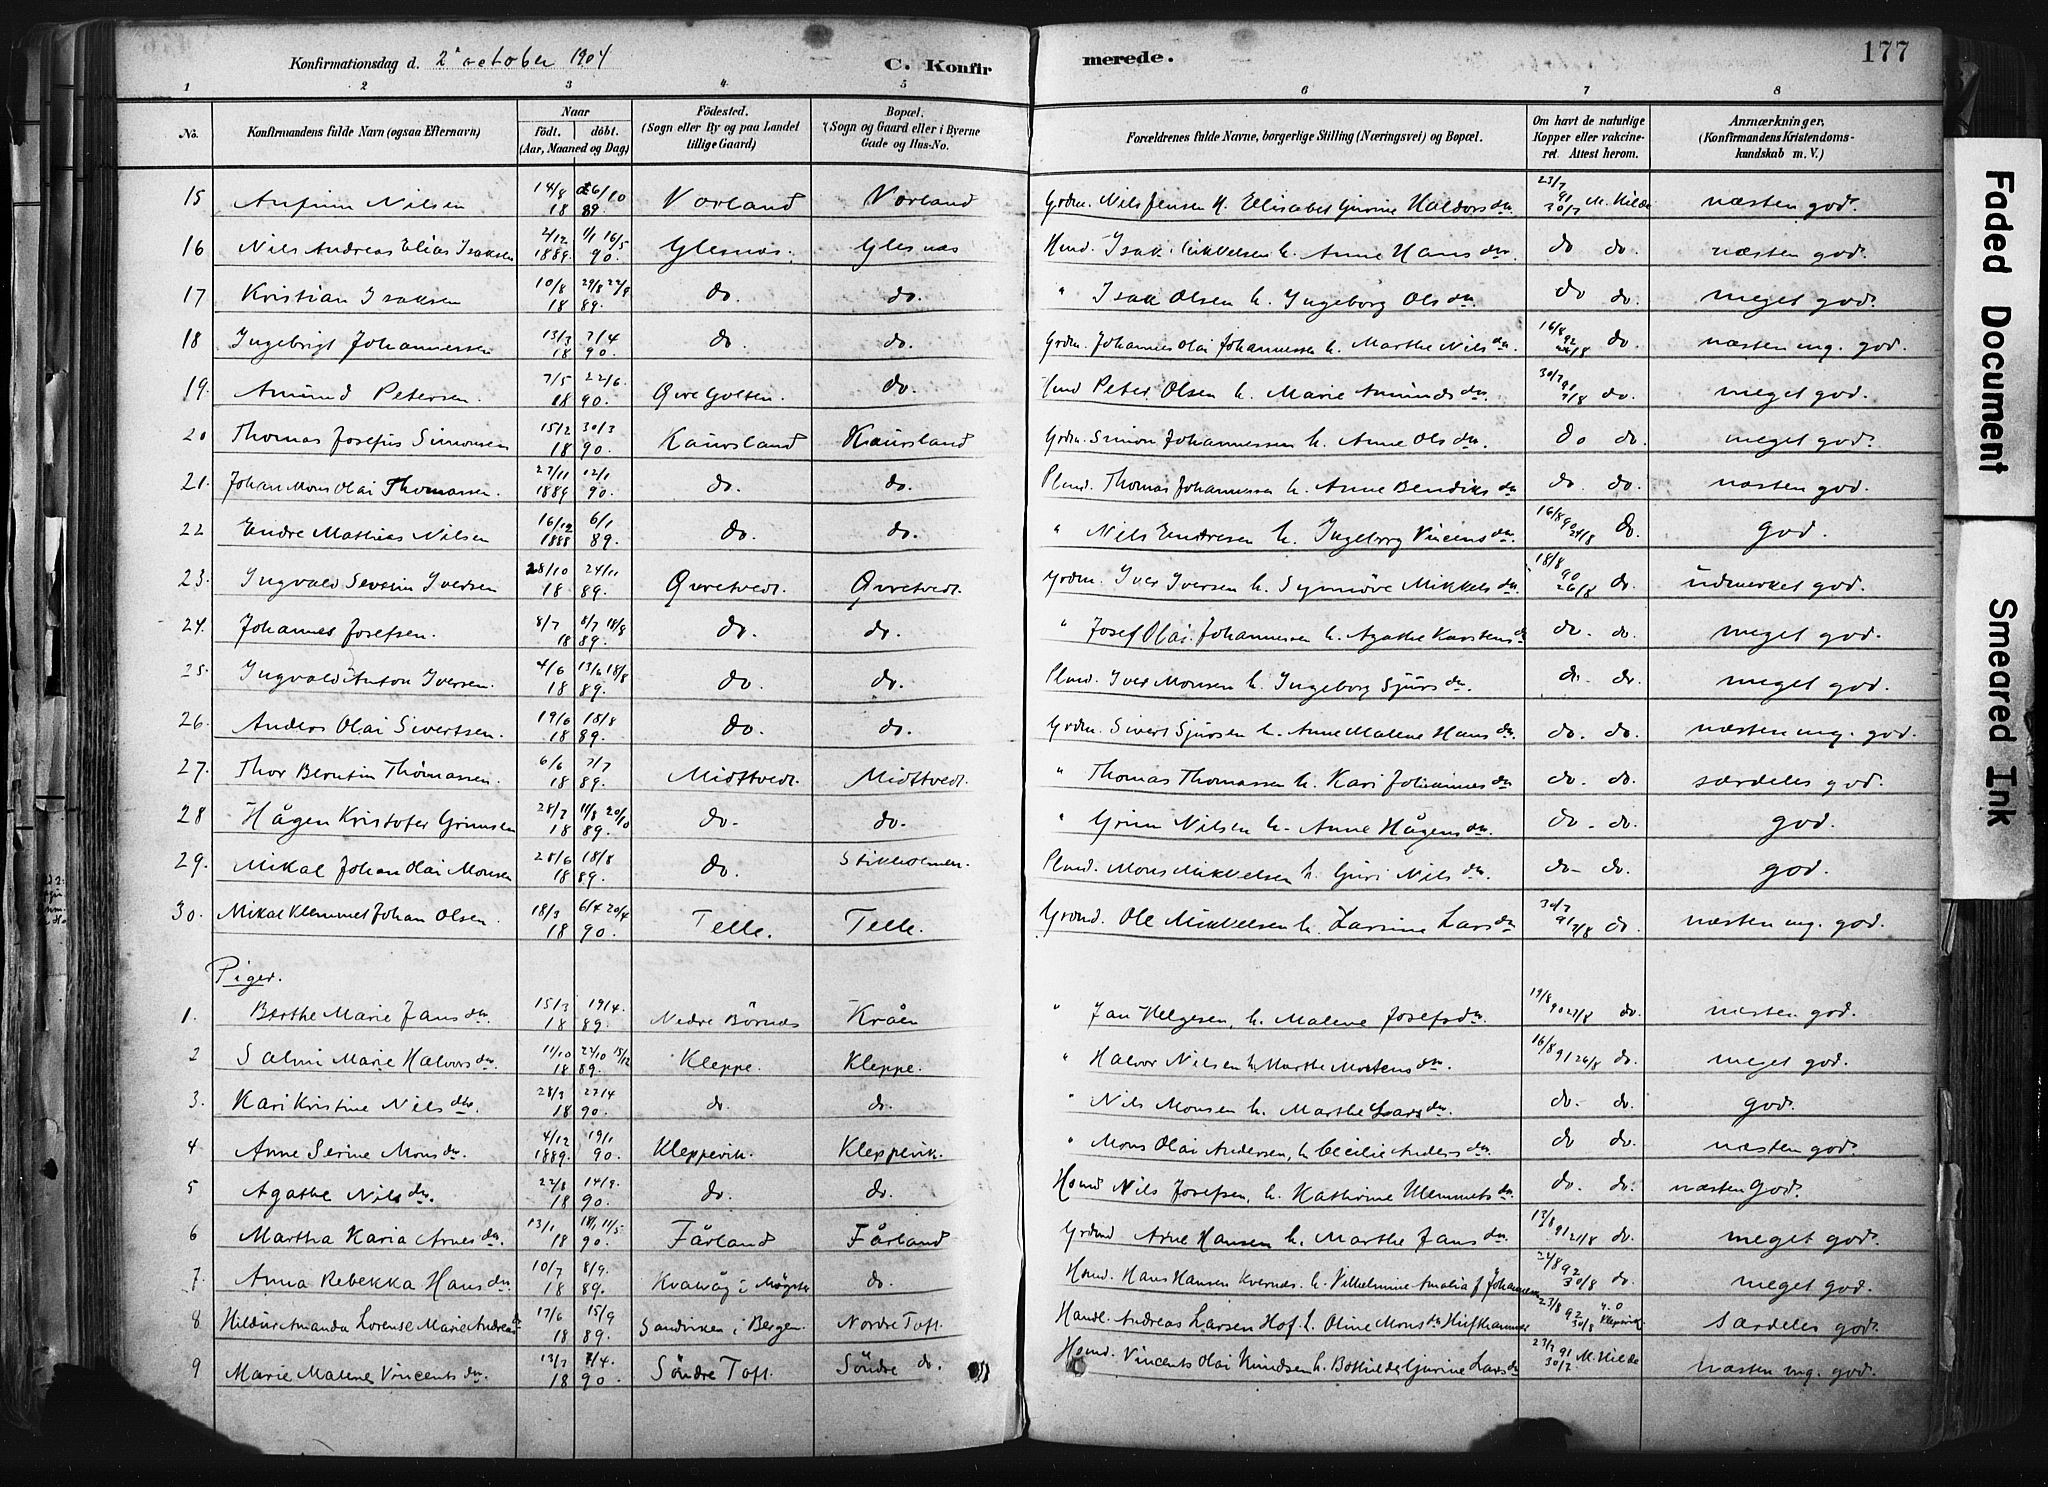 Konfirmationsdag d. 2 october 1904 C. Konfir merede. 177
1 2 3 4 5 6 7 8
No. Konfirmandens fulde Navn (ogsaa Efternavn) Naar født. døbt. (Aar, Maaned og Dag) Fødested. (Sogn eller By og paa Landet tillige Gaard) Bopæl. (Sogn og Gaard eller i Byerne Gade og Hus-No. Forældrenes fulde Navne, borgerlige Stilling (Næringsvei) og Bopæl. Om havt de naturlige Kopper eller vakcineret. Attest herom. Anmærkninger, (Konfirmandens Kristendomskundskab m. V.)
15 Anfinn Nilsen 14/8 26/10 18 89. Vorland Vorland Grdm. Nils Jensen h. Elisabet Gurine Haldorsdtr 23/7 91 30/7 M. Hilde næsten god.
16 Nils Andreas Elias Isaksen 2/12 1/1 16/5 1889. 90. Glesnæs. Glesnæs Hmd. Isak Mikkelsen h. Anne Hansdtr do do. næsten god.
17 Kristian Isaksen 10/8 29/8 18 89. do. do. " Isak Olsen h. Ingeborg Olsdtr. do do. meget god.
18 Ingebrigt Johannessen 13/3 7/4 18 90. do. do. Grdm. Johannes Olai Johannessen h. Marthe Nilsdtr. 16/8 92 do. næsten mg. god.
19. Amund Petersen. 7/5 22/6. 18 90. Øvre Golten. do. Hmd Peter Olsen h. Marie Amundsdtr. 30/7 91 7/8 do. meget god.
20 Thomas Josefus Simonsen 15/2 30/3 18 90. Kaursland Kaursland Grdm. Simon Johannessen h. Anne Olsdtr. do do. meget god.
21. Johan Mons Olai Thomassen. 27/11 12/1 1889 90. do. do. Plmd. Thomas Johannessen h. Anne Bendiksdtr do. do. næsten god.
22 Endre Mathias Nilsen 16/12 6/1 1888 89. do. do. " Nils Endresen h. Ingeborg Vincensdtr. 16/8 90 24/8 do. god.
23. Ingvald Severin Iversen 28/10 24/11 18 89. Øvretvedt. Øvretvedt. Grdm. Iver Iversen h. Synnøve Mikkelsdtr 18/8 90 26/8 do. udmerket god.
24. Johannes Josefsen. 8/7 8/7 18/8 18 89. do. do. " Josef Olai Johannessen h. Agathe Karstensdtr do. do. meget god.
25. Ingvald Anton Iversen. 4/6 13/6 18/8 18 89. do. do. Plmd. Iver Monsen h. Ingeborg Sjursdtr. do. do. meget god.
26. Anders Olai Sivertsen. 19/6 18/8 18 89. do. do. Grdm. Sivert Sjursen h. Anne Malene Hansdtr. do. do. næsten mg. god.
27. Thor Berntin Thomassen. 6/6 7/7 18 89. Midttvedt. Midttvedt. " Thomas Thomassen h. Kari Johannesdtr do. do. særdeles god.
28 Hågen Kristofer Grimsen 28/7 11/8 20/10 18 89. do. do. " Grim Nilsen h. Anne Hågensdtr. do. do. god.
29. Mikal Johan Olai Monsen 28/6 18/8 18 89. do. Stikholmen. Plmd. Mons Mikkelsen h. Guri Nilsdtr. do. do. god.
30. Mikal Klemmet Johan Olsen. 18/3 6/4 20/4 18 90. Telle. Telle. Grdmd. Ole Mikkelsen h. Larsine Larsdtr 30/7 91 7/8 do. næsten mg. god.
Piger.
1. Berthe Marie Jansdtr. 15/3 19/4. 18 89. Nedre Börnes Kråen " Jan Helgesen, h. Malene Josefsdtr. 19/8 90 27/8 do. næsten god.
2 Salmi Marie Halvorsdtr. 11/10 27/10 15/12 18 89. Kleppe. Kleppe. " Halvor Nilsen h. Marthe Mortensdtr. 16/8 91 24/8 do. meget god.
3. Kari Kristine Nilsdtr. 28/3 27/4 18 90. do. do. " Nils Monsen h. Marthe Larsdtr. do. do. god.
4 Anne Serine Monsdtr. 4/12 19/1 1889. 90. Kleppevik. Kleppevik. " Mons Olai Andersen, h. Cecilie Andersdtr. do do. næsten god
5 Agathe Nilsdtr. 22/8 14/9. 18 90. do. do. Hsmd Nils Josefsen, h. Kathrine Klemmetsdtr. do. do. næsten god.
6 Martha Karia Arnesdtr. 13/1 18/1 11/5. 18 90. Fårland Fårland Grdmd Arne Hansen h. Marthe Jansdtr. 13/8 91 21/8 do. meget god.
7. Anna Rebekka Hansdtr. 10/7 8/9. 18 89. Kvalvåg i Møgster do. Hsmd. Hans Hansen Kvernæs. h. Vilhelmine Amalia f. Johannesen 24/8 92 30/8 do. meget god.
8 Hildur Amanda Lorense Marie Andreasdtr 17/6 15/9 18 89. Sandviken i Bergen. Nordre Toft. Handl. Andreas Larsen Hof. h. Oline Monsdtr 23/8 92 30/8 særdeles god.
9 Marie Malene Vincentsdtr. 13/3 7/4. 18 90. Söndre Toft. Söndre do. Hsmd. Vincents Olai Knudsen h. Bothilde Gurine Larsdtr 23/7 91 30/7 M. Hilde næsten mg. god.
Faded Document
Smeared Ink